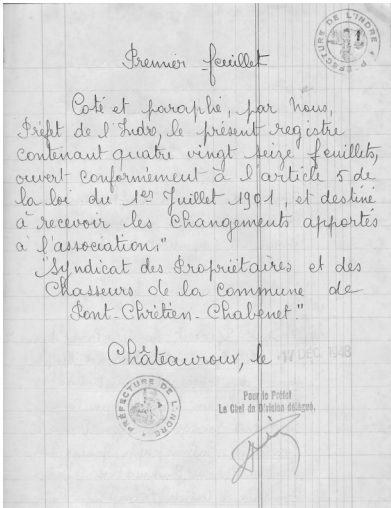 PREFECTURE DE L'INDRE
1
Premier feuillet
Coté et paraphé, par Nous,
Préfet de l'Indre, le présent registre
contenant quatre vingt seize feuillets,
ouvert conformément à l'article 5 de
la loi du 1er Juillet 1901, et destiné
à recevoir les changements apportés
à l'association,"
"Syndicat des Propriétaires et des
Chasseurs de la Commune de
Pont-Chrétien-Chabenet."
Châteauroux, le 17 DEC 1948
PRÉFECTURE DE L'INDRE
Pour le Préfet
Le Chef de Division délégué,